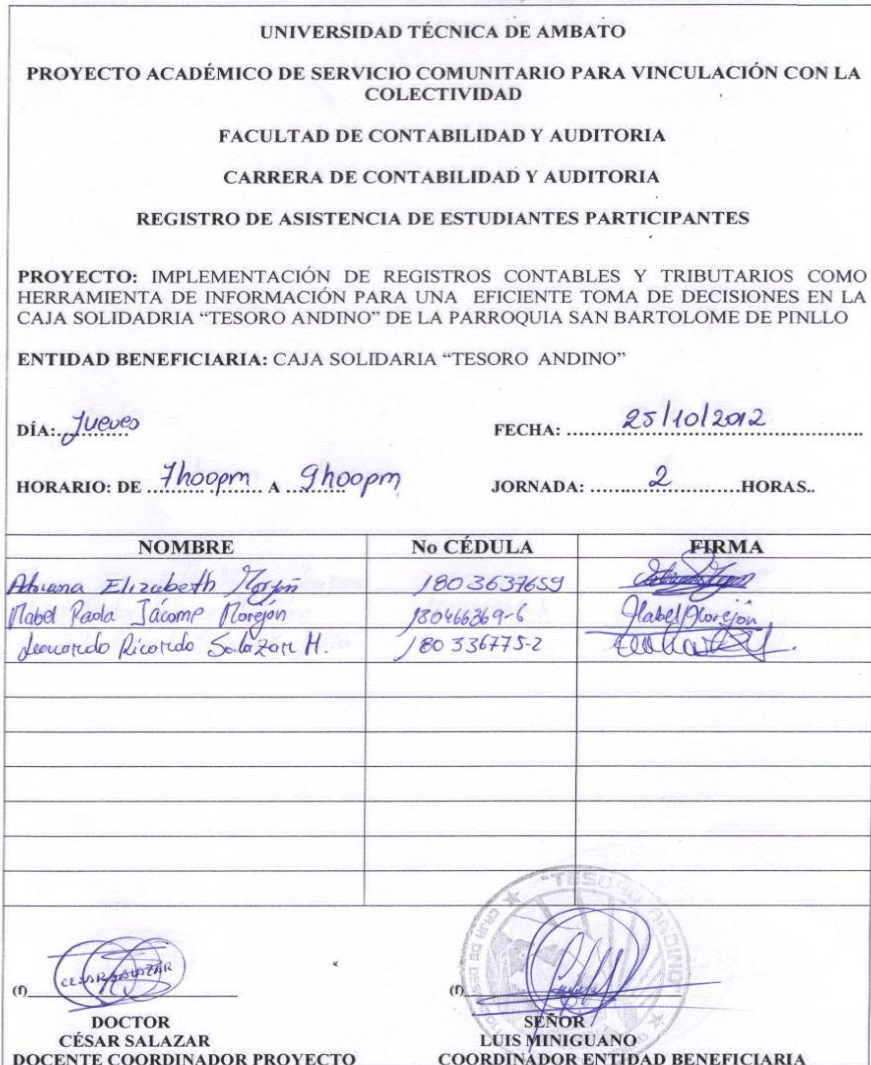 UNIVERSIDAD TÉCNICA DE AMBATO
PROYECTO ACADÉMICO DE SERVICIO COMUNITARIO PARA VINCULACIÓN CON LA
COLECTIVIDAD
FACULTAD DE CONTABILIDAD Y AUDITORIA
CARRERA DE CONTABILIDAD Y AUDITORIA
REGISTRO DE ASISTENCIA DE ESTUDIANTES PARTICIPANTES
PROYECTO: IMPLEMENTACIÓN DE REGISTROS CONTABLES Y TRIBUTARIOS COMO
HERRAMIENTA DE INFORMACIÓN PARA UNA EFICIENTE TOMA DE DECISIONES EN LA
CAJA SOLIDADRIA “TESORO ANDINO” DE LA PARROQUIA SAN BARTOLOME DE PINLLO
ENTIDAD BENEFICIARIA: CAJA SOLIDARIA “TESORO ANDINO”
DÍA: Jueves FECHA: 25/10/2012
HORARIO: DE 7h00pm A 9h00pm JORNADA: 2 HORAS..
NOMBRE No CÉDULA FIRMA
Adriana Elizabeth Morejón 1803637659
Mabel Paola Jácome Morejón 180466369-6 Mabel Morejón
Leonardo Ricardo Salazar M. 180336775-2
"TESORO ANDINO"
CESAR SALAZAR
(f) (f)
DOCTOR SEÑOR
CÉSAR SALAZAR LUIS MINIGUANO
DOCENTE COORDINADOR PROYECTO COORDINADOR ENTIDAD BENEFICIARIA